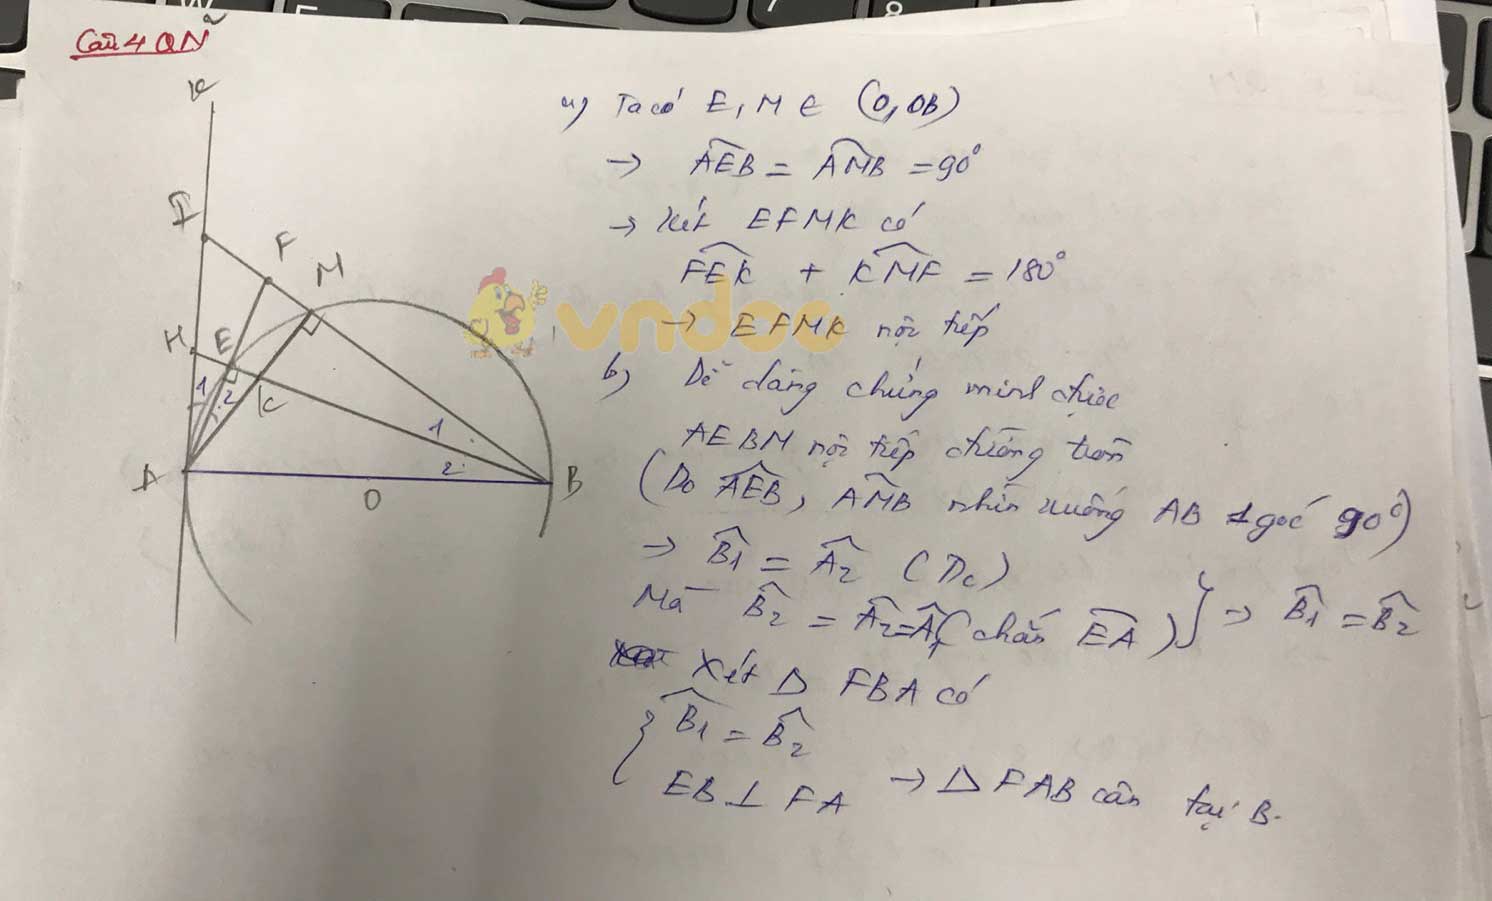 Câu 4 QN
x
I
F
M
H
E
1
2
K
1
2
A
O
B
vndoc
a) Ta có E, M ∈ (O, OB)
→ AEB = AMB = 90°
→ Xét EFMK có
FEK + KMF = 180°
→ EFMK nội tiếp
b) Dễ dàng chứng minh được
AEBM nội tiếp đường tròn
(Do AEB, AMB nhìn xuống AB 1 góc 90°)
→ B1 = A2 (Dc)
Mà B2 = A2 = A1 (chắn EA) } → B1 = B2
Xét Δ FBA có
{ B1 = B2
EB ⊥ FA → Δ FAB cân tại B.